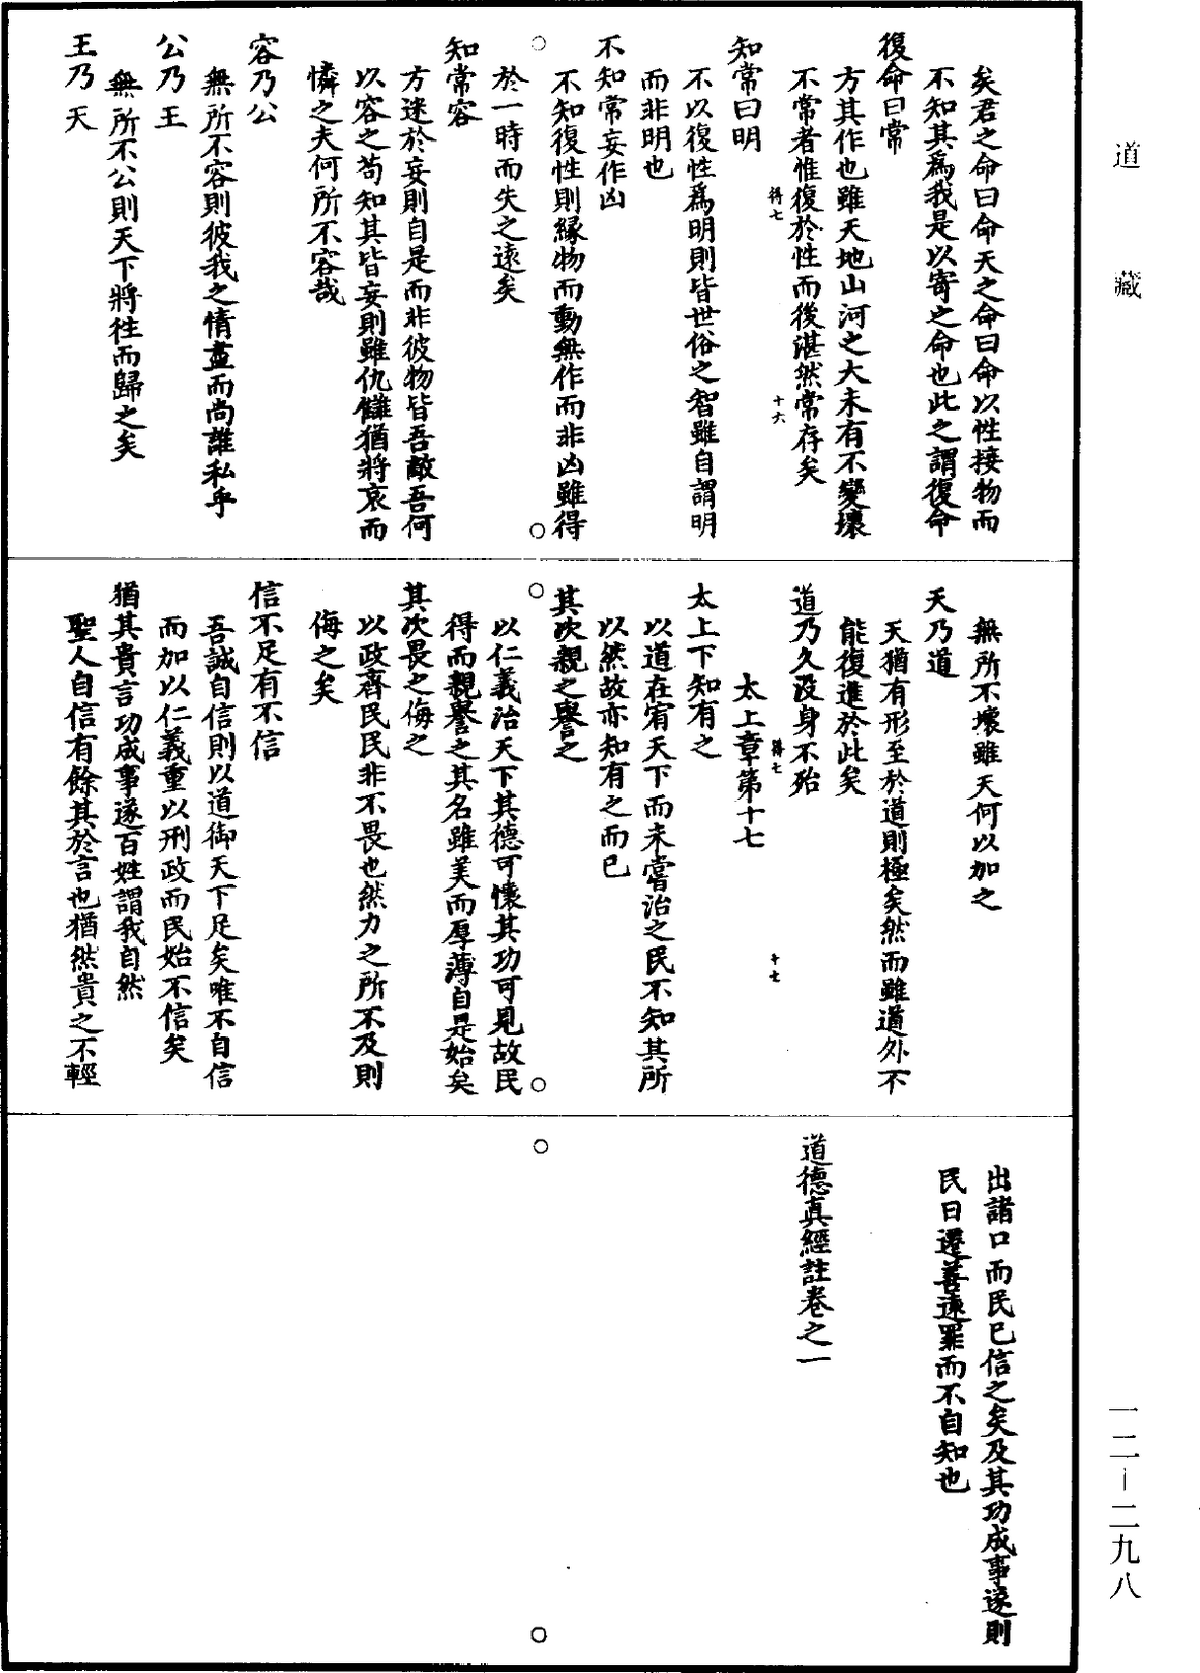 道藏
矣君之命曰命天之命曰命以性接物而
不知其爲我是以寄之命也此之謂復命
復命曰常
方其作也雖天地山河之大未有不變壞
不常者惟復於性而後湛然常存矣
得七
十六
知常曰明
不以復性爲明則皆世俗之智雖自謂明
而非明也
不知常妄作凶
不知復性則緣物而動無作而非凶雖得
於一時而失之遠矣
知常容
方迷於妄則自是而非彼物皆吾敵吾何
以容之苟知其皆妄則雖仇讎猶將哀而
憐之夫何所不容哉
容乃公
無所不容則彼我之情盡而尚誰私乎
公乃王
無所不公則天下將往而歸之矣
王乃天
無所不壞雖天何以加之
天乃道
天猶有形至於道則極矣然而雖道外不
能復進於此矣
道乃久沒身不殆
得七
十七
太上章第十七
太上下知有之
以道在宥天下而未嘗治之民不知其所
以然故亦知有之而已
其次親之譽之
以仁義治天下其德可懷其功可見故民
得而親譽之其名雖美而厚薄自是始矣
其次畏之侮之
以政齊民民非不畏也然力之所不及則
侮之矣
信不足有不信
吾誠自信則以道御天下足矣唯不自信
而加以仁義重以刑政而民始不信矣
猶其貴言功成事遂百姓謂我自然
聖人自信有餘其於言也猶然貴之不輕
出諸口而民已信之矣及其功成事遂則
民日遷善遠罪而不自知也
道德真經註卷之一
一二－二九八